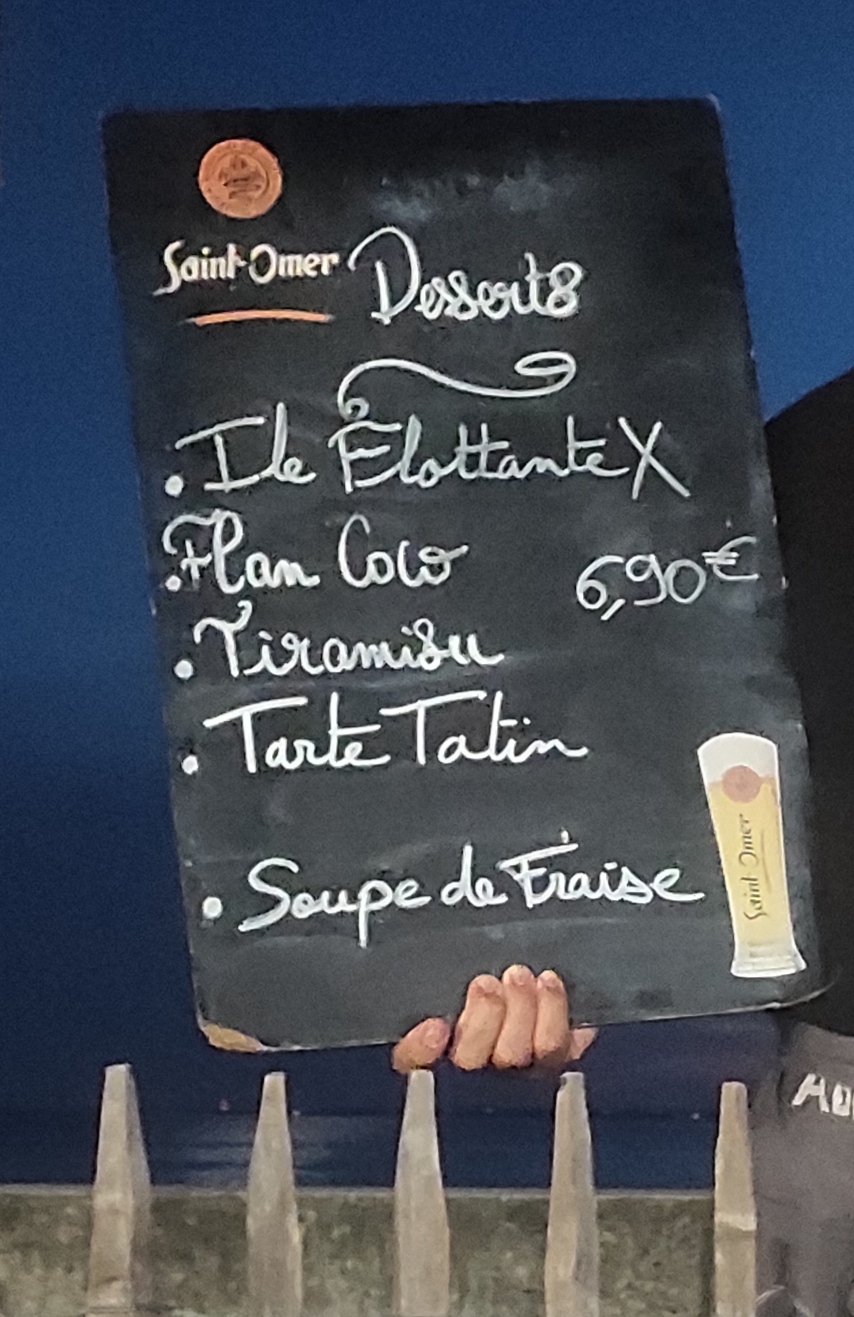 Saint-Omer
Desserts
• Ile Flottante X
• Flan Coco
6,90€
• Tiramisu
• Tarte Tatin
• Soupe de Fraise
Saint-Omer